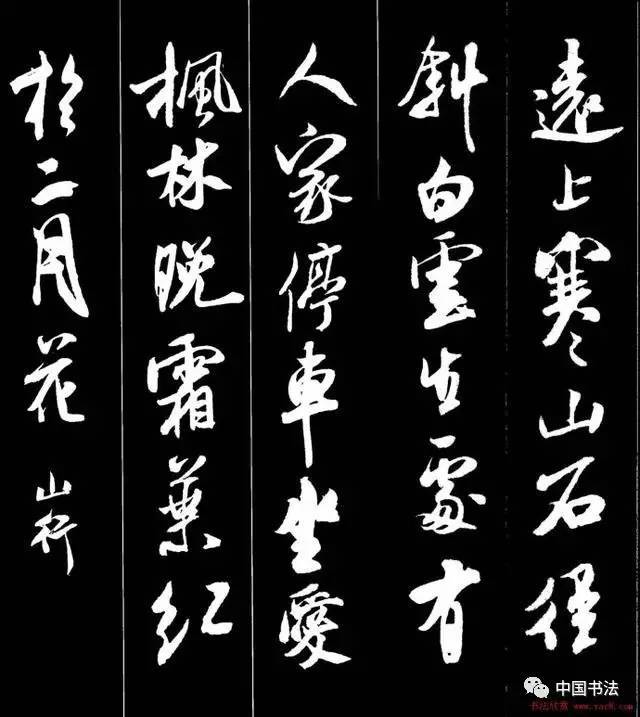 遠上寒山石徑
斜白雲生處有
人家停車坐愛
楓林晚霜葉紅
於二月花 山行
中国书法
书法欣赏 www.yac8.com